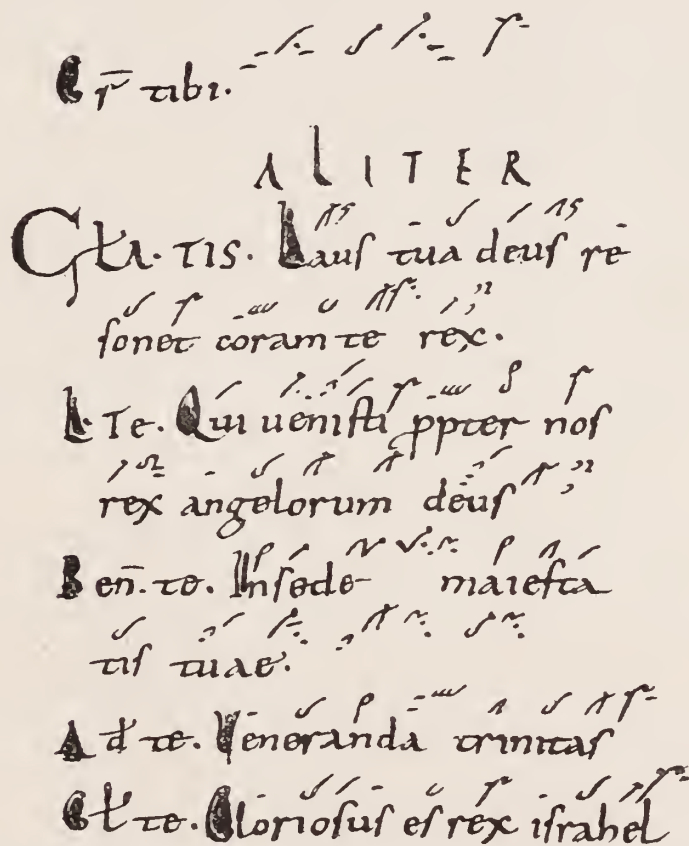 Gr̄ tibi.
ALITER
Gła. TIS. Laus tua deus re
sonet coram te rex.
L. Te. Qui uenisti ꝓpter nos
rex angelorum deus
Ben̄. te. In sede maiesta
tis tuae.
Ad te. Veneranda trinitas
Gł te. Gloriosus es rex israhel